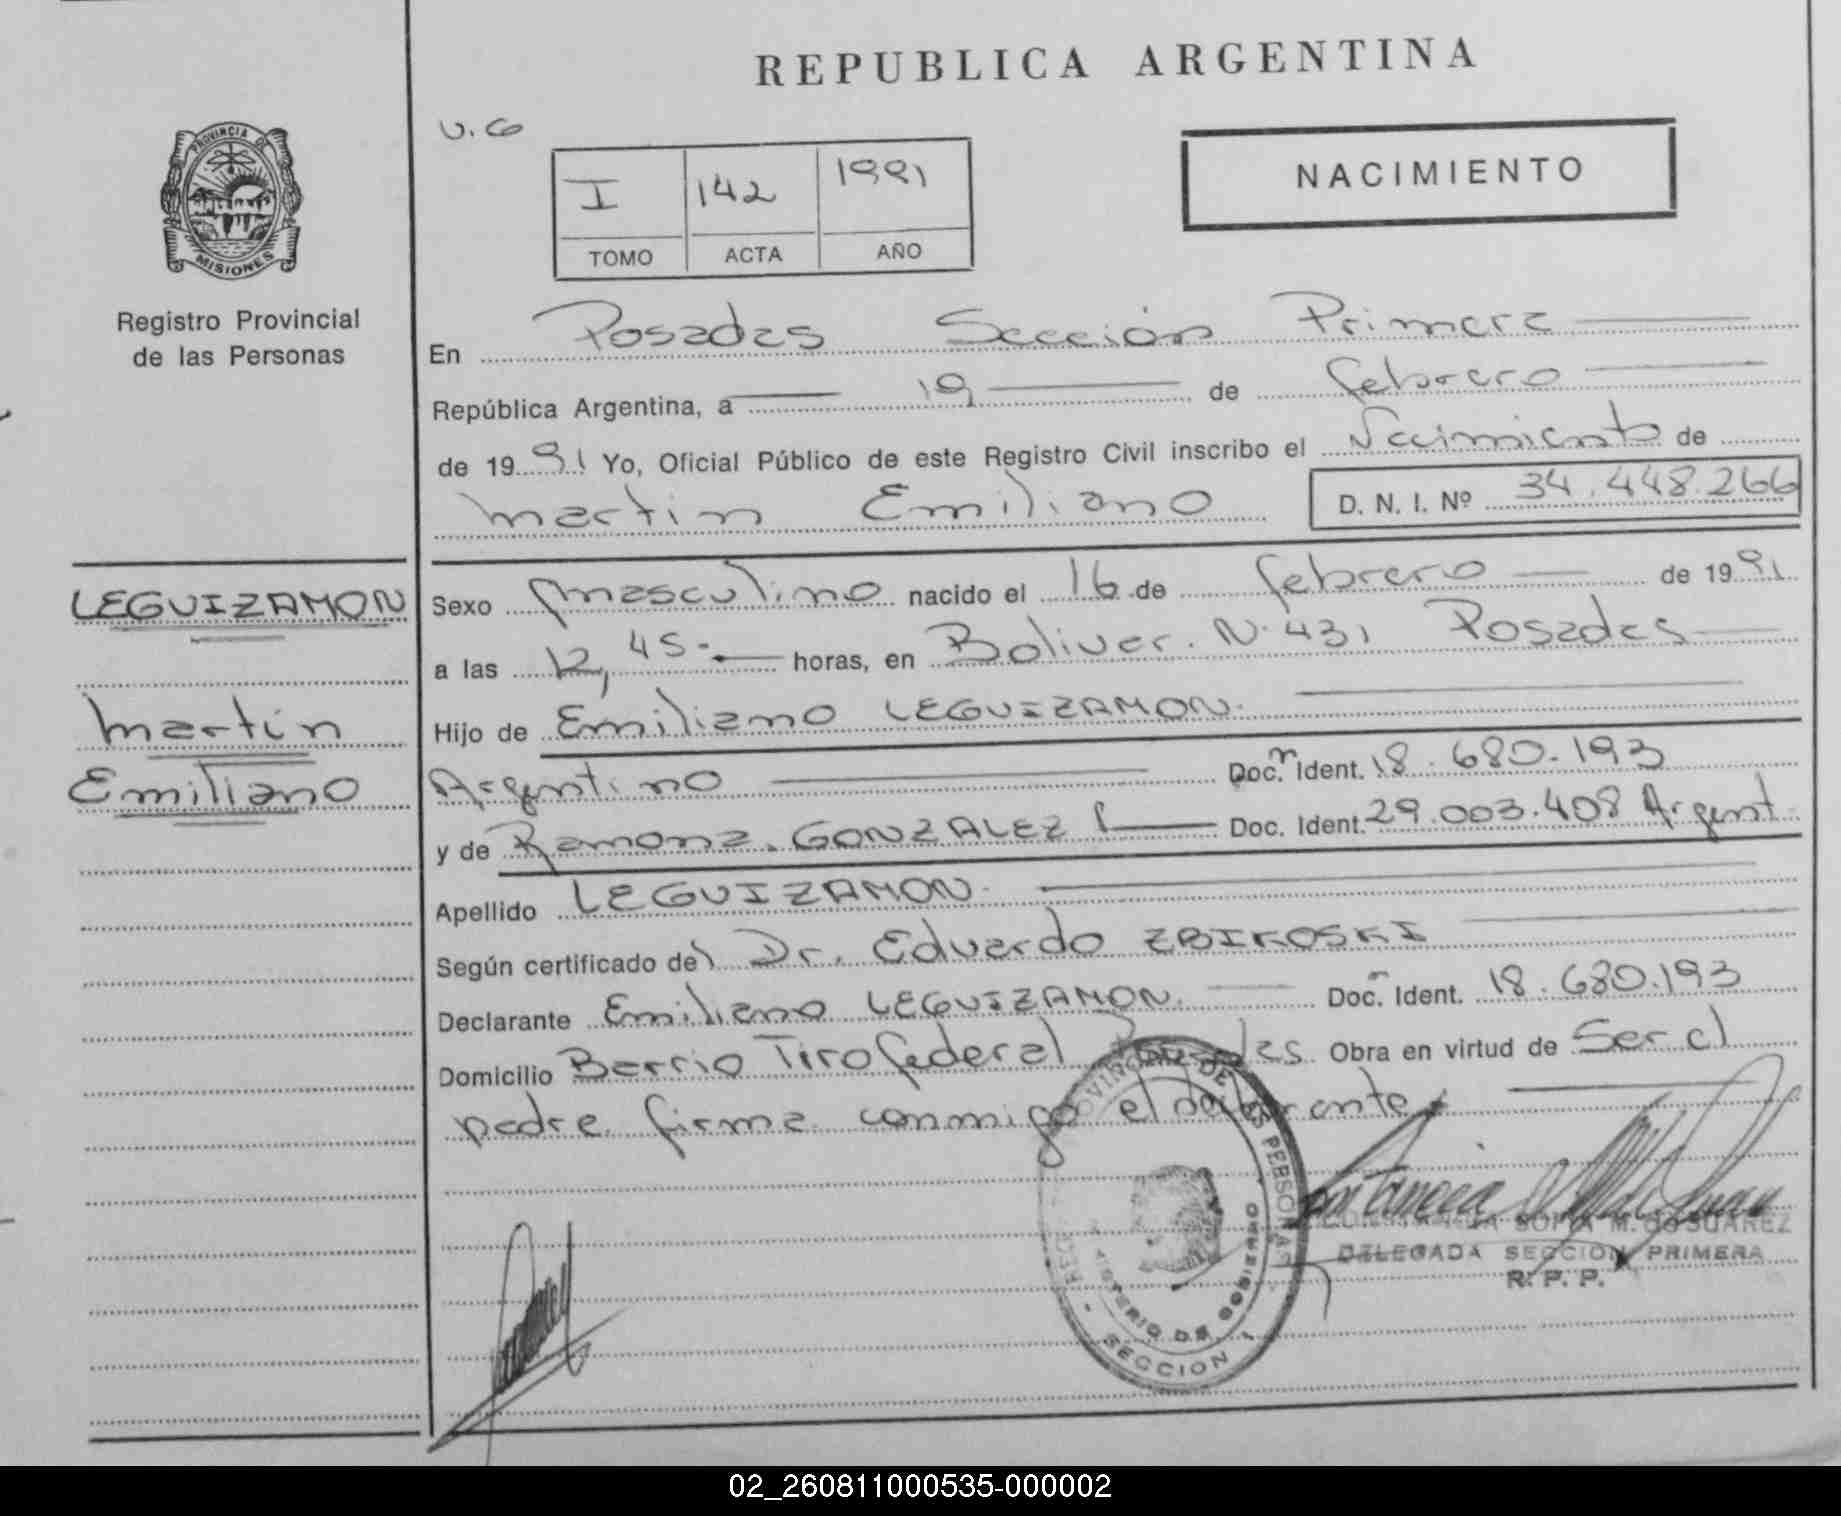 REPUBLICA ARGENTINA
PROVINCIA DE
MISIONES
Registro Provincial
de las Personas
U.G
I 142 1991
TOMO ACTA AÑO
NACIMIENTO
En Posadas Sección Primera
República Argentina, a 19 de febrero
de 19 91 Yo, Oficial Público de este Registro Civil inscribo el Nacimiento de
Martin Emiliano D. N. I. Nº 34.448.266
LEGUIZAMON
Martin
Emiliano
Sexo masculino nacido el 16 de febrero de 19 91
a las 12,45.- horas, en Bolivar. N. 431 Posadas
Hijo de Emiliano LEGUIZAMON.
Argentino Doc. Ident. 18.680.193
y de Ramona. GONZALEZ Doc. Ident. 29.003.408 Argent.
Apellido LEGUIZAMON.
Según certificado del Dr. Eduardo ZBIKOSKI
Declarante Emiliano LEGUIZAMON. Doc. Ident. 18.680.193
Domicilio Barrio Tiro federal Posadas. Obra en virtud de Ser el
padre. firma conmigo el declarante.
SOFIA M. de SUAREZ
DELEGADA SECCION PRIMERA
R. P. P.
MINISTERIO DE GOBIERNO
SECCION 1
02_260811000535-000002